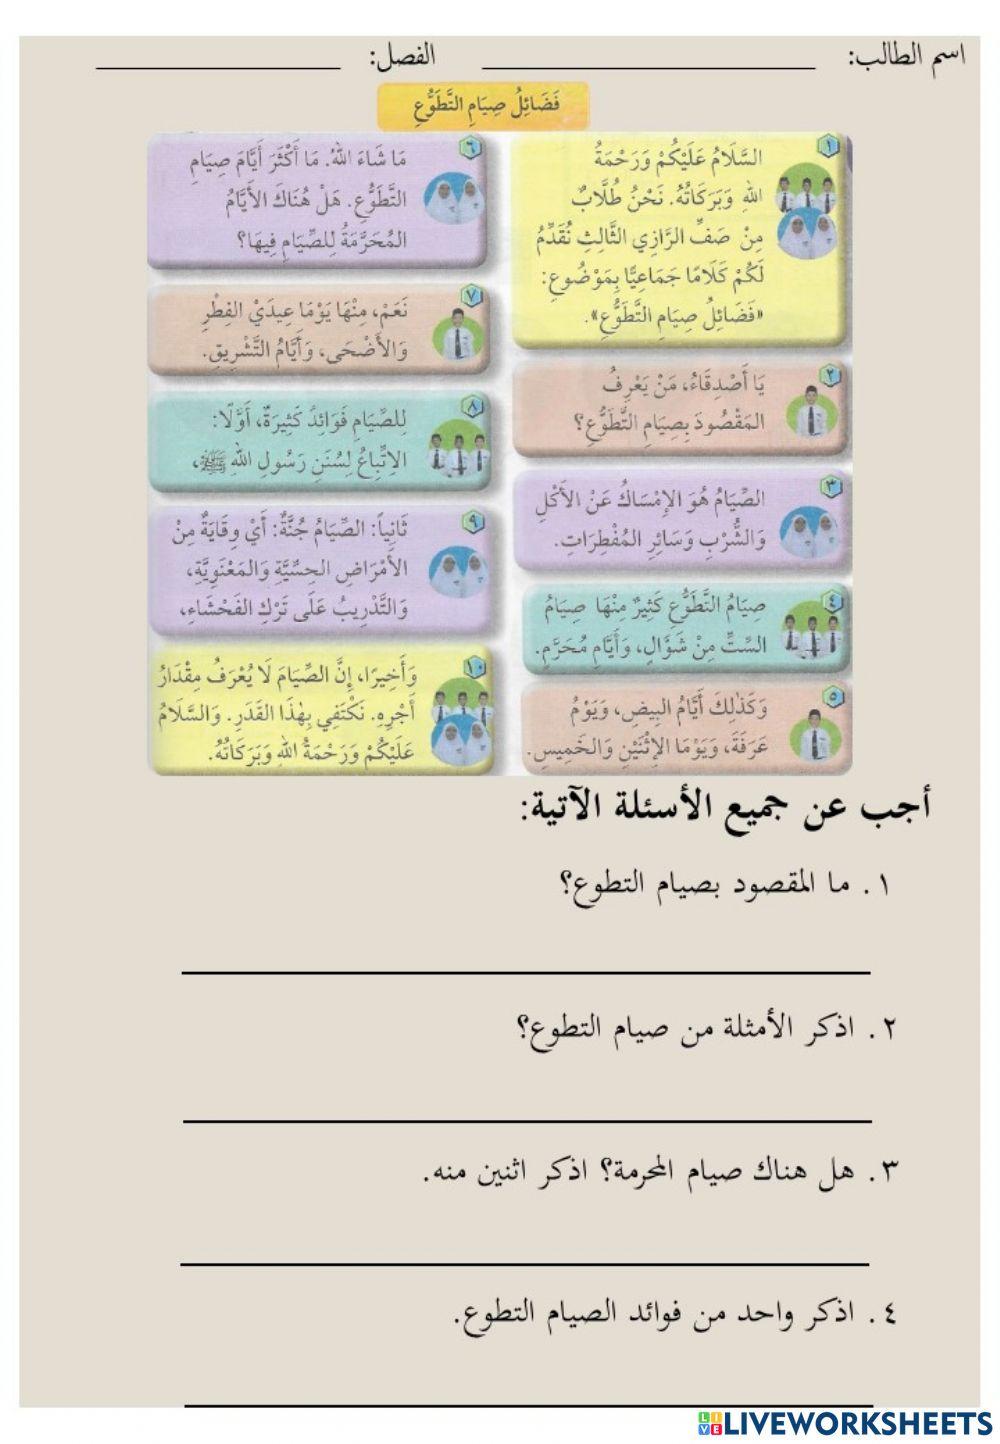 اسم الطالب: ____________ الفصل: ____________
فَضَائِلُ صِيَامِ التَّطَوُّعِ
١
السَّلَامُ عَلَيْكُمْ وَرَحْمَةُ
اللهِ وَبَرَكَاتُهُ. نَحْنُ طُلَّابٌ
مِنْ صَفِّ الرَّازِي الثَّالِثِ نُقَدِّمُ
لَكُمْ كَلَامًا جَمَاعِيًّا بِمَوْضُوعِ:
«فَضَائِلُ صِيَامِ التَّطَوُّعِ».
٢
يَا أَصْدِقَاءُ، مَنْ يَعْرِفُ
المَقْصُودَ بِصِيَامِ التَّطَوُّعِ؟
٣
الصِّيَامُ هُوَ الإِمْسَاكُ عَنْ الأَكْلِ
وَالشُّرْبِ وَسَائِرِ المُفْطِرَاتِ.
٤
صِيَامُ التَّطَوُّعِ كَثِيرٌ مِنْهَا صِيَامُ
السِّتِّ مِنْ شَوَّالٍ، وَأَيَّامِ مُحَرَّمٍ.
٥
وَكَذٰلِكَ أَيَّامُ البِيضِ، وَيَوْمُ
عَرَفَةَ، وَيَوْمَا الإِثْنَيْنِ وَالخَمِيسِ.
٦
مَا شَاءَ اللهُ. مَا أَكْثَرَ أَيَّامَ صِيَامِ
التَّطَوُّعِ. هَلْ هُنَاكَ الأَيَّامُ
المُحَرَّمَةُ لِلصِّيَامِ فِيهَا؟
٧
نَعَمْ، مِنْهَا يَوْمَا عِيدَيْ الفِطْرِ
وَالأَضْحَى، وَأَيَّامُ التَّشْرِيقِ.
٨
لِلصِّيَامِ فَوَائِدُ كَثِيرَةٌ، أَوَّلًا:
الاِتِّبَاعُ لِسُنَنِ رَسُولِ اللهِ ﷺ،
٩
ثَانِياً: الصِّيَامُ جُنَّةٌ: أَيْ وِقَايَةٌ مِنْ
الأَمْرَاضِ الحِسِّيَّةِ وَالمَعْنَوِيَّةِ،
وَالتَّدْرِيبُ عَلَى تَرْكِ الفَحْشَاءِ،
١٠
وَأَخِيرًا، إِنَّ الصِّيَامَ لَا يُعْرَفُ مِقْدَارُ
أَجْرِهِ. نَكْتَفِي بِهٰذَا القَدَرِ. وَالسَّلَامُ
عَلَيْكُمْ وَرَحْمَةُ اللهِ وَبَرَكَاتُهُ.
أجب عن جميع الأسئلة الآتية:
١. ما المقصود بصيام التطوع؟
٢. اذكر الأمثلة من صيام التطوع؟
٣. هل هناك صيام المحرمة؟ اذكر اثنين منه.
٤. اذكر واحد من فوائد الصيام التطوع.
LIVE LIVEWORKSHEETS